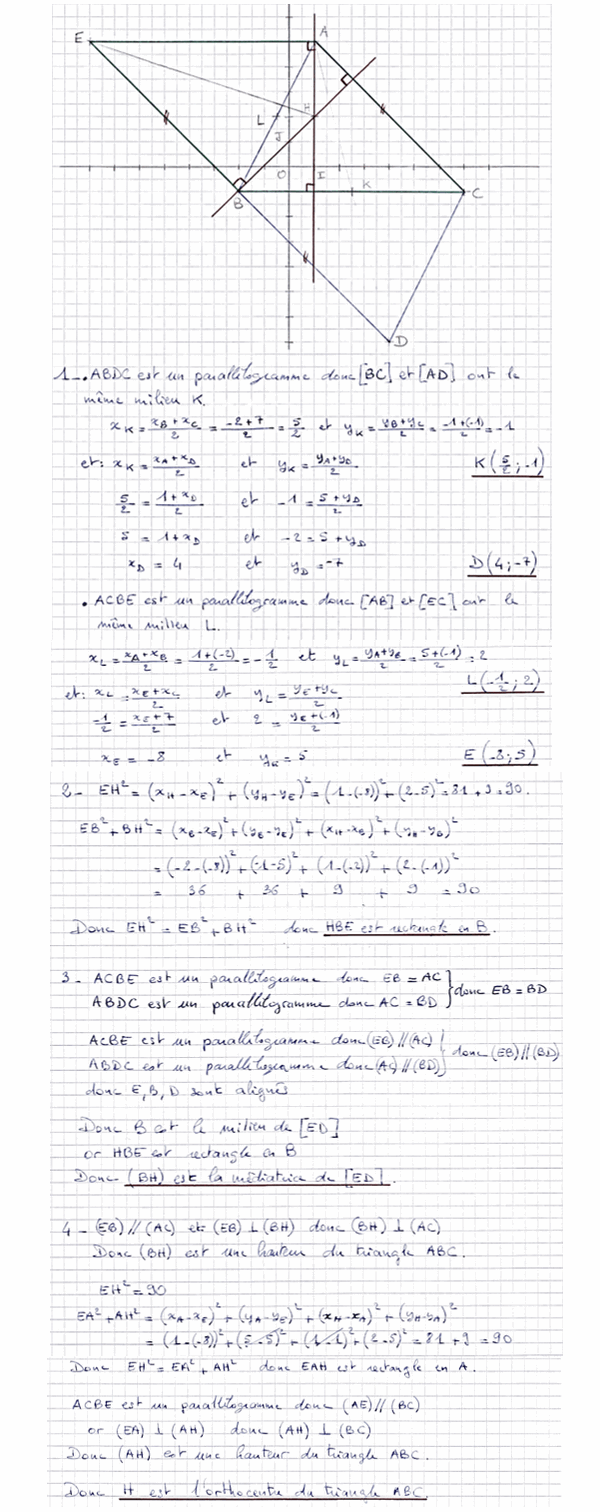 E
A
H
L
J
O
I
K
B
C
D
1 - . ABDC est un parallélogramme donc [BC] et [AD] ont le
même milieu K.
x_K = (x_B + x_C)/2 = (-2+7)/2 = 5/2 et y_K = (y_B + y_C)/2 = (-1+(-1))/2 = -1
et: x_K = (x_A + x_D)/2 et y_K = (y_A + y_D)/2 K(5/2 ; -1)
5/2 = (1 + x_D)/2 et -1 = (5 + y_D)/2
5 = 1 + x_D et -2 = 5 + y_D
x_D = 4 et y_D = -7 D(4 ; -7)
. ACBE est un parallélogramme donc [AB] et [EC] ont le
même milieu L.
x_L = (x_A + x_B)/2 = (1+(-2))/2 = -1/2 et y_L = (y_A + y_B)/2 = (5+(-1))/2 = 2
et: x_L = (x_E + x_C)/2 et y_L = (y_E + y_C)/2 L(-1/2 ; 2)
-1/2 = (x_E + 7)/2 et 2 = (y_E + (-1))/2
x_E = -8 et y_E = 5 E(-8 ; 5)
2 - EH² = (x_H - x_E)² + (y_H - y_E)² = (1-(-8))² + (2-5)² = 81 + 9 = 90.
EB² + BH² = (x_B - x_E)² + (y_B - y_E)² + (x_H - x_B)² + (y_H - y_B)²
= (-2-(-8))² + (-1-5)² + (1-(-2))² + (2-(-1))²
= 36 + 36 + 9 + 9 = 90
Donc EH² = EB² + BH² donc HBE est rectangle en B.
3 - ACBE est un parallélogramme donc EB = AC
ABDC est un parallélogramme donc AC = BD } donc EB = BD
ACBE est un parallélogramme donc (EB) // (AC)
ABDC est un parallélogramme donc (AC) // (BD) } donc (EB) // (BD)
donc E, B, D sont alignés
Donc B est le milieu de [ED]
or HBE est rectangle en B
Donc (BH) est la médiatrice de [ED].
4 - (EB) // (AC) et (EB) ⊥ (BH) donc (BH) ⊥ (AC)
Donc (BH) est une hauteur du triangle ABC.
EH² = 90
EA² + AH² = (x_A - x_E)² + (y_A - y_E)² + (x_H - x_A)² + (y_H - y_A)²
= (1-(-8))² + (5-5)² + (1-1)² + (2-5)² = 81 + 9 = 90
Donc EH² = EA² + AH² donc EAH est rectangle en A.
ACBE est un parallélogramme donc (AE) // (BC)
or (EA) ⊥ (AH) donc (AH) ⊥ (BC)
Donc (AH) est une hauteur du triangle ABC.
Donc H est l'orthocentre du triangle ABC